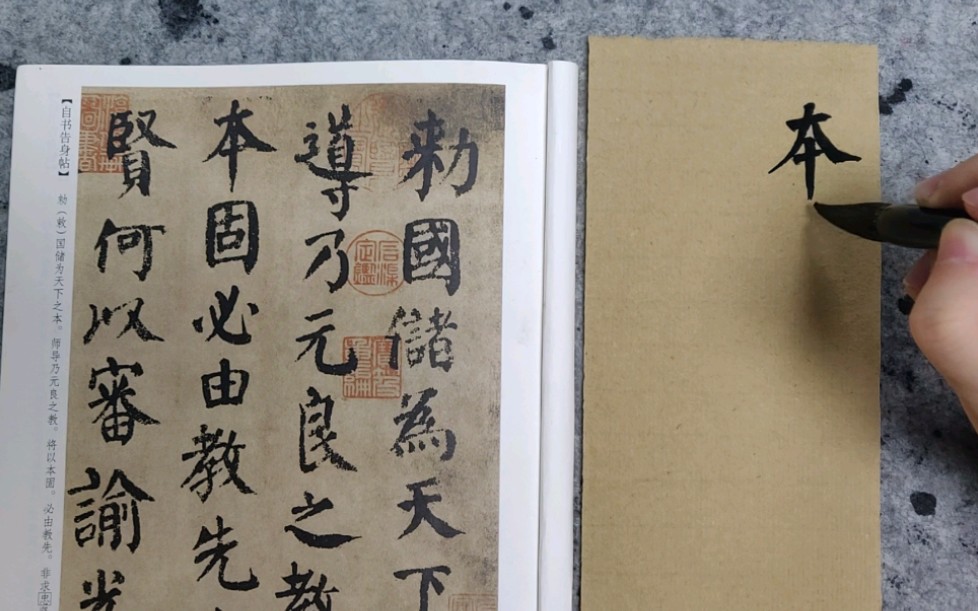 本
勑國儲為天下
導乃元良之教
本固必由教先
賢何以審諭光
【自书告身帖】 勑（敕）国储为天下之本。师导乃元良之教。将以本固。必由教先。非求